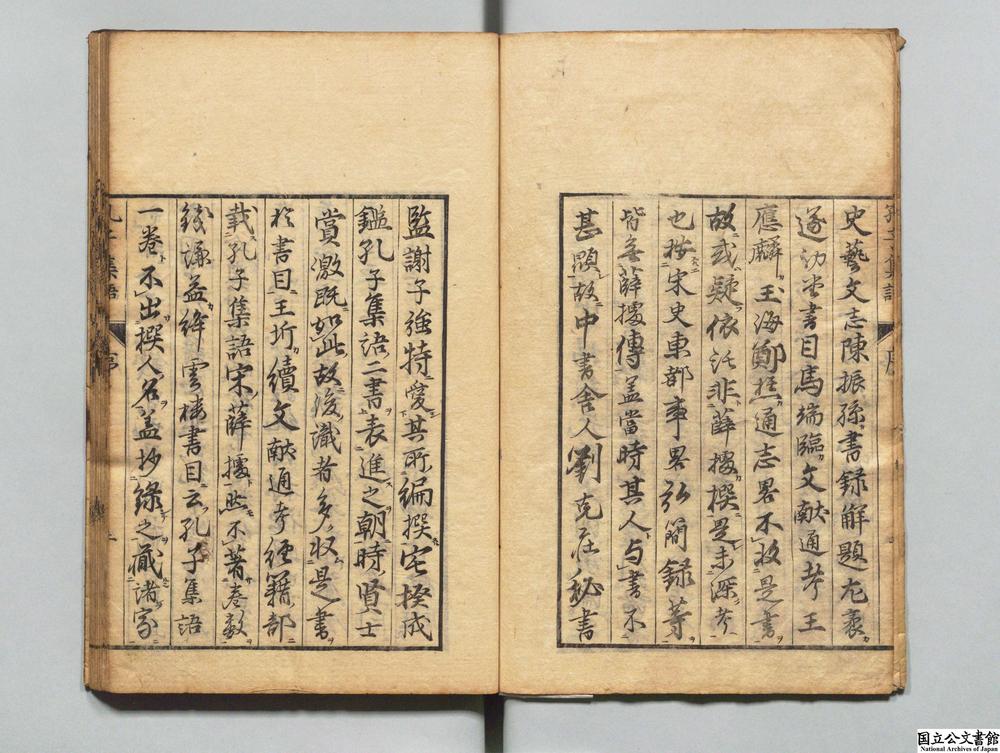 史藝文志陳振孫書録解題尤袤
遂初堂書目馬端臨文献通考王
應麟玉海鄭樵通志畧不收是書
故或疑依託非薛據撰是未深考
也按宋史東都事畧弘簡録等
皆無薛據傳盖當時其人与書不
甚顕故中書舎人劉克荘秘書
監謝子強特愛其所編撰宅揆成
鑑孔子集語二書表進之朝時賢士
賞激既如此故後識者多収是書
於書目王圻續文献通考經籍部
載孔子集語宋薛據然不著巻数
錢謙益絳雲楼書目云孔子集語
一巻不出撰人名盖抄録之藏諸家
孔子集語 序
国立公文書館
National Archives of Japan